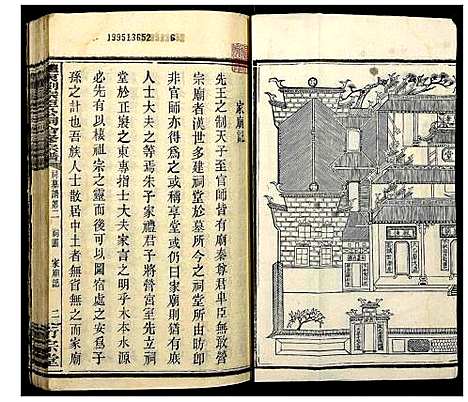 199513652 6
家廟誌
先王之制天子至官師皆有廟秦尊君卑臣無敢營
宗廟者漢世多建祠堂於墓所今之祠堂所由昉卽
非官師亦得爲之或稱享堂或仍曰家廟則猶有底
人士大夫之等焉朱子家禮君子將營宮室先立祠
堂於正寢之東專指士大夫家言之明乎木本水源
必先有以棲祖宗之靈而後可以圖宿處之安爲子
孫之計也吾族人士散居中土者無省無之而家廟
祠墓譜卷二 祠圖 家廟誌